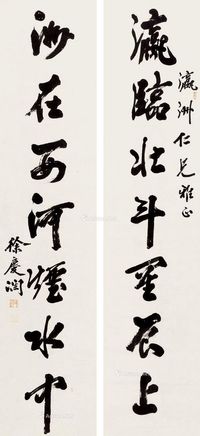 瀛洲仁兄雅正
瀛臨北斗星辰上
洲在西河煙水中
徐慶